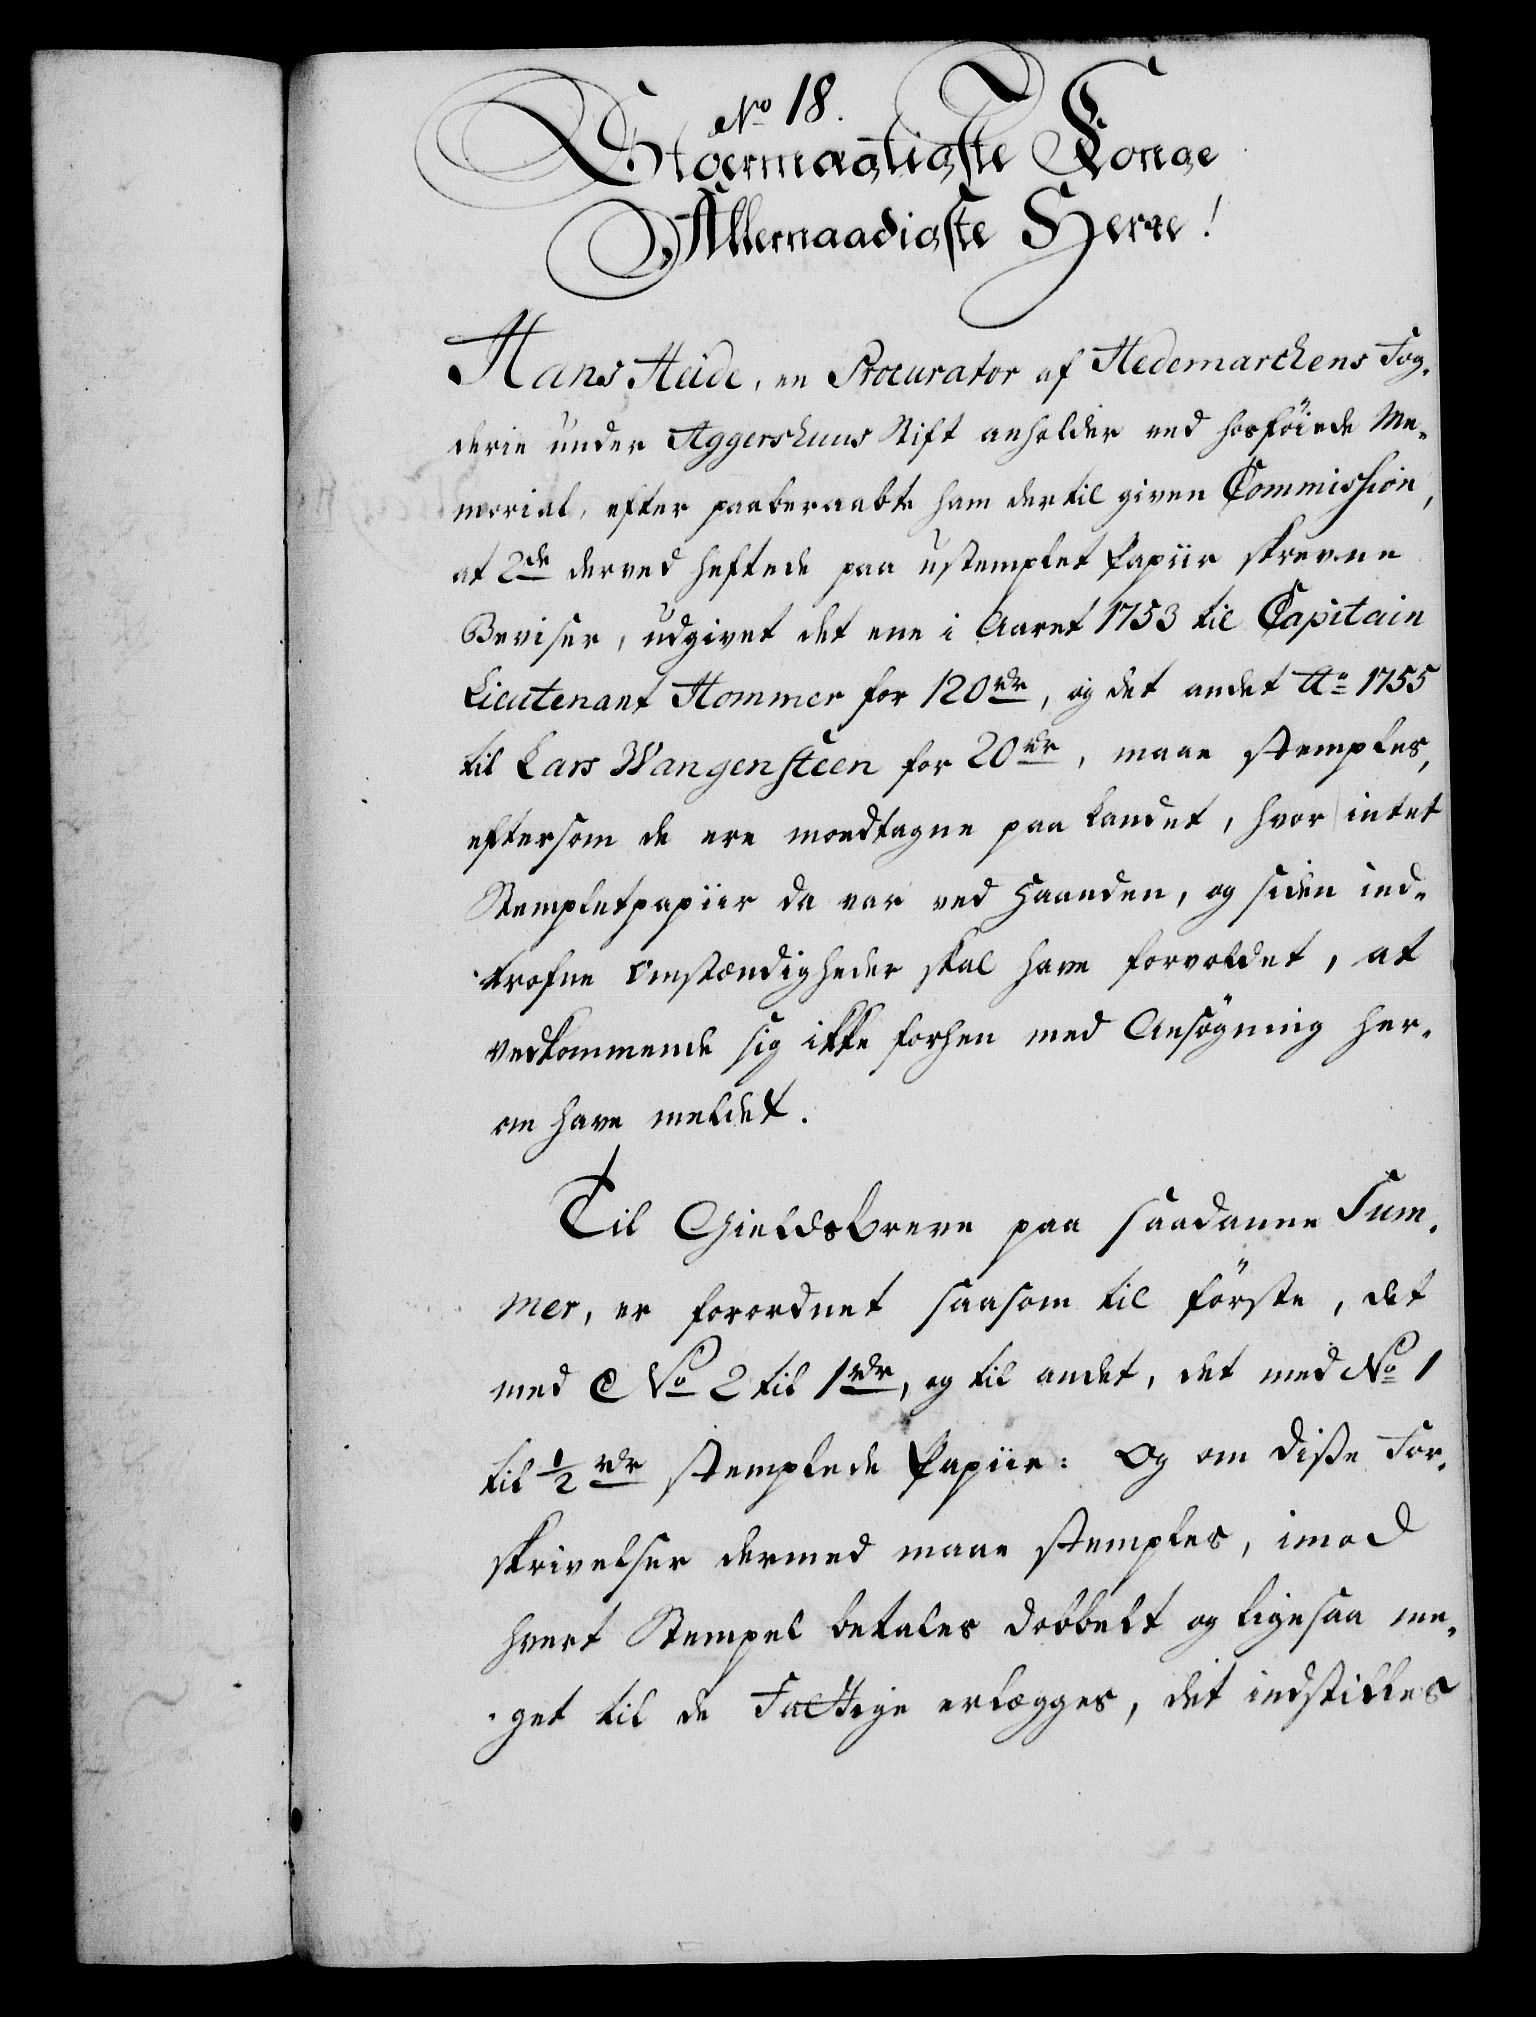 No 18.
Stoermægtigste Konge
Allernaadigste Herre!
Hans Heide, en Procurator af Hedemarckens Fog-
derie under Aggershuus Stift anholder ved hosföiede Me-
morial, efter paaberaabte ham dertil given Commission,
at 2de derved heftede paa ustemplet Papiir skrevne
Beviser, udgivet det ene i Aaret 1753 til Capitain
Lieutenant Hommer for 120 rdr, og det andet Ao 1755
til Lars Wangensteen for 20 rdr, maae stemples,
eftersom de ere modtagne paa Landet, hvor intet
Stempletpapiir da var ved Haanden, og siden ind-
trofne Omstændigheder skal have forvoldet, at
vedkommende sig ikke forhen med Ansögning her-
om have meldet.
Til Gieldsbreve paa saadanne Sum-
mer, er forordnet saasom til förste, det
med C No 2 til 1 rdr, og til andet, det med No 1
til 1/2 rdr stemplede Papiir: Og om disse For-
skrivelser dermed maae stemples, imod
hvert Stempel betales dobbelt og ligesaa me-
get til de Fattige erlægges, det indstilles